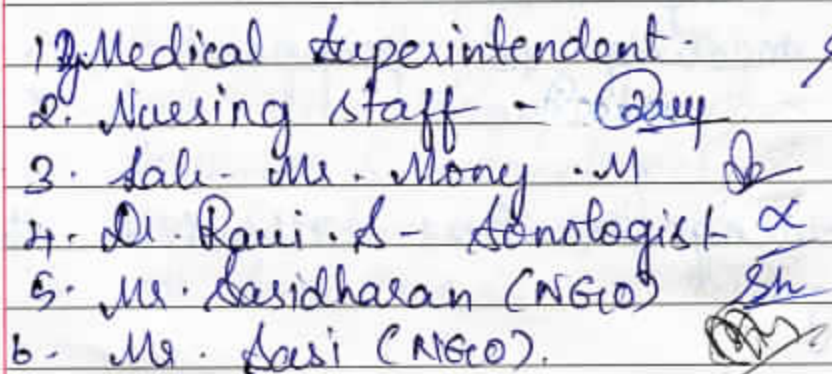 1) Dy. Medical Superintendent
2. Nursing staff -
3. Lab - Mr. Mony . M
4. Dr. Ravi . S - Sonologist
5. Mr. Sasidharan (NGO)
6. Mr. Sasi (NGO).